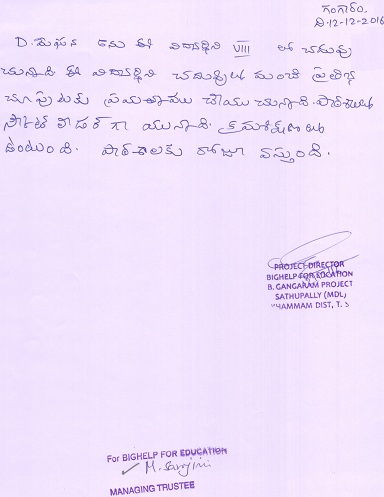 గంగారం.
ది:12-12-2016
D. మేఘన అను ఈ విద్యార్థిని VIII లో చదువు
చున్నాది. ఈ విద్యార్థిని చదువులో మంచి ప్రతిభ
చూపుటకు ప్రయత్నము చేయు చున్నాది. పాఠశాలలో
లీడర్ గా యున్నాది. క్రమశిక్షణలో
ఉంటుంది. పాఠశాలకు రోజూ వస్తుంది.
PROJECT DIRECTOR
BIGHELP FOR EDUCATION
B. GANGARAM PROJECT
SATHUPALLY (MDL)
KHAMMAM DIST, T. S
For BIGHELP FOR EDUCATION
M. Sarojini
MANAGING TRUSTEE